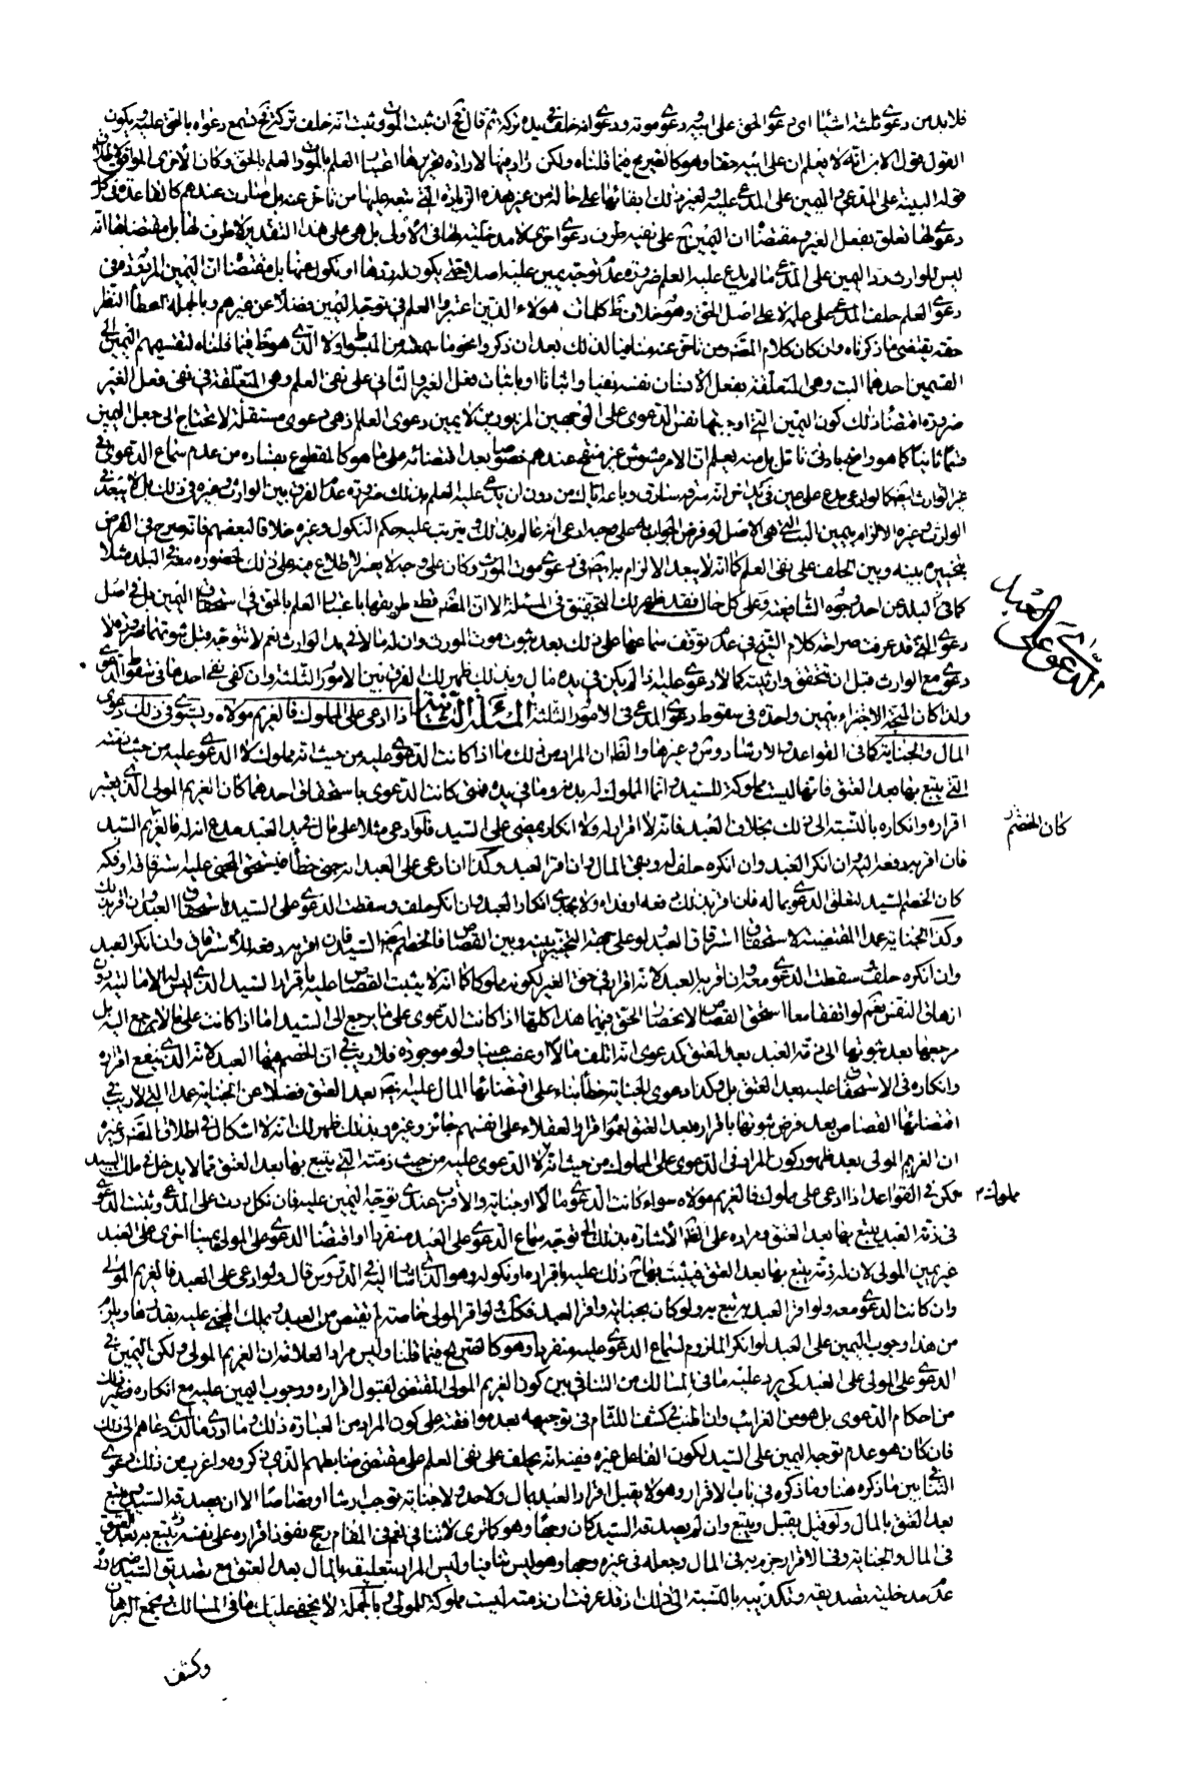 فلا بد من دعوى ثلثة اشياء اى دعوى الحق على ابيه ودعوى موته ودعوى انه خلف فى يده تركة ثم قال فان ثبت الموت وثبت انه خلف تركة تسمع دعواه بالحق عليه ويكون
القول قول الوارث انه لا يعلم ان على ابيه حقا وهو كالصريح فيما قلناه ولكن اعتبار العلم بالموت والعلم بالحق
قوله البينة على المدعى واليمين على المدعى عليه وغير ذلك
دعوى لها تعلق بفعل الغير ومقتضاه ان اليمين على نفيه طرف دعوى اخرى لا مدخلية لها فى الاولى بل هى على هذا التقدير لا طرف لها بل مقتضاها انه
ليس للوارث رد اليمين على المدعى ما لم يدع عليه العلم ضرورة عدم توجه يمين عليه اصلا حتى يكون له ردها او نكول عنها بل مقتضاه ان اليمين المردودة فى
دعوى العلم حلف المدعى على علمه لا على اصل الحق وهو خلاف ظاهر كلمات هؤلاء الذين اعتبروا العلم فى توجه اليمين فضلا عن غيرهم وبالجملة اعطاء النظر
حقه يقتضى ما ذكرناه وان كان كلام المصنف ومن تاخر عنه منافيا لذلك بعد ان ذكروا نحو ما سمعته من المبسوط اولا الذى هو ظاهر فيما قلناه لتقسيمهم اليمين الى
القسمين احدهما البت وهى المتعلقة بفعل الانسان نفسه نفيا واثباتا او باثبات فعل الغير والثانى على نفى العلم وهى المتعلقة فى نفى فعل الغير
ضرورة اقتضاء ذلك كون اليمين التى اوجبتها نفس الدعوى على الوجهين المزبورين لا يمين دعوى العلم اذ هى دعوى مستقلة لا تحتاج الى جعل اليمين
قسما ثانيا كما هو واضح بادنى تامل بل منه يعلم ان الامر مشوش غير منقح عندهم خصوصا بعد اقتضائه على ما هو كالمقطوع بفساده من عدم سماع الدعوى فى
غير الوارث ايضا كما لو ادعى مدع على عين فى يد اخر انه سرقه سارق وباعه اياك من دون ان يدعى عليه العلم بذلك ضرورة عدم الفرق بين الوارث وغيره فى ذلك بل لا يتعدى
الوارث وغيره الالزام بيمين البت التى هى الاصل لو فرض الجواب به على ويترتب عليه حكم النكول وغيره خلافا لبعضهم فانه صرح فى الفرض
بتخييره بينه وبين الحلف على نفى العلم كما انه لا يبعد الالزام به ايضا فى دعوى موت المورث وكان على وجه لا يعسر الاطلاع منه على ذلك لحضوره معه فى البلد مثلا
كما فى البلد عن احد وجوه الشافعية وعلى كل حال فقد ظهر لك التحقيق فى المسئلة الا ان المصنف قطع طريقها باعتبار العلم بالحق فى استحقاق اليمين بل فى اصل
دعوى التى قد عرفت صراحة كلام الشيخ فى عدم توقف سماعها على ذلك بعد ثبوت موت المورث وان له مالا فى يد الوارث نعم لا تتوجه قبل ثبوتهما ضرورة ان لا
دعوى مع الوارث قبل ان يتحقق وارثيته كما لا دعوى عليه اذا لم يكن فى يده مال وبذلك ظهر لك الفرق بين الامور الثلثة وان كفى نفى احدها فى سقوط الدعوى
ولذا كان المتجه الاجتزاء بيمين واحدة فى سقوط دعوى المدعى فى الامور الثلثة المسئلة الثانية اذا ادعى على المملوك فالغريم مولاه ويستوى فى ذلك دعوى
المال والجناية كما فى القواعد والارشاد وس وغيرها والظاهر ان المراد من ذلك ما اذا كانت الدعوى عليه من حيث انه مملوك لا الدعوى عليه من حيث نفسه
التى يتبع بها بعد العتق فانها ليست مملوكة للسيد وانما المملوك له بدنه وما فى يده فمتى كانت الدعوى باستحقاق احدهما كان الغريم المولى الذى يعتبر
اقراره وانكاره بالنسبة الى ذلك بخلاف العبد فانه لا اقرار له ولا انكار يمضى على السيد فلو ادعى مثلا على مال فى يد العبد مدع انه له فالغريم السيد
فان اقر به دفعه اليه وان انكر العبد وان انكره حلف له وبقى المال وان اقر العبد وكذا ان ادعى على العبد انه جنى خطأ فيستحق المجنى عليه استرقاقه او فكه
كان الخصم السيد لتعلق الدعوى بماله فان اقر بذلك دفعه او فداه ولا يجدى انكار العبد وان انكر حلف وسقطت الدعوى على السيد باستحقاق العبد وان اقر بذلك
وكذا الجناية عمدا المقتضية لاستحقاق استرقاق العبد ولو على جهة التخيير بينه وبين القصاص فالخصم ايضا السيد فان اقر به دفعه للاسترقاق وان انكر العبد
وان انكره حلف وسقطت الدعوى معه وان اقر به العبد لانه اقرار فى حق الغير لكونه مملوكا كما انه لا يثبت القصاص عليه باقرار السيد الذى ليس له الا ماليته دون
ازهاق النفس نعم لو اتفقا معا استحق القصاص لانحصار الحق فيهما هذا كله اذا كانت الدعوى على ما يرجع الى السيد اما اذا كانت على ما لا يرجع اليه بل
مرجعها بعد ثبوتها الى ذمة العبد بعد العتق كدعوى انه اتلف مالا او غصب عينا ولو موجودة فلا ريب فى ان الخصم فيها العبد لانه الذى ينفع اقراره
وانكاره فى الاستحقاق عليه بعد العتق بل وكذا دعوى الجناية خطأ بناء على اقتضائها المال عليه يتبع به بعد العتق فضلا عن الجناية عمدا التى لا ريب فى
اقتضائها القصاص بعد فرض ثبوتها باقراره بعد العتق لعموم اقرار العقلاء على انفسهم جائز وغيره وبذلك ظهر لك انه لا اشكال فى اطلاق المصنف وغيره
ان الغريم المولى بعد ظهور كون المراد فى الدعوى على المملوك من حيث انه كذلك لا الدعوى عليه من حيث ذمته التى يتبع بها بعد العتق مما لا يدخل فى ملك السيد
لكن فى القواعد اذا ادعى على مملوك فالغريم مولاه سواء كانت الدعوى مالا او جناية والاقرب عندى توجه اليمين عليه فان نكل ردت على المدعى وتثبت الدعوى
فى ذمة العبد يتبع بها بعد العتق ومراده على الظاهر الاشارة بذلك الى توجه سماع الدعوى على العبد منفردا او اقتضاء الدعوى على المولى يمينا اخرى على العبد
غير يمين المولى لان له ذمة يتبع بها بعد العتق فيثبت بها ح ذلك عليه باقراره او نكوله وهو الذى اشار اليه فى الدروس قال ولو ادعى على العبد فالغريم المولى
وان كانت الدعوى معه ولو اقر العبد به تبع به ولو كان بجناية واقر العبد فكذلك ولو اقر المولى خاصة لم يقتص من العبد ويملك المجنى عليه بقدرها ويلزم
من هذا وجوب اليمين على العبد لو انكر الملزوم لسماع الدعوى عليه منفردا وهو كالصريح فيما قلنا وليس مراد العلامة ان الغريم المولى ولكن اليمين فى
الدعوى على المولى على العبد كى يرد عليه ما فى المسالك من التنافى بين كون الغريم المولى المقتضى لقبول اقراره ووجوب اليمين عليه مع انكاره وغير ذلك
من احكام الدعوى بل هو من الغرائب وان اطنب فى كشف اللثام فى توجيهه بعد موافقته على كون المراد من العبارة ذلك وما ادرى ما الذى دعاهم الى ذلك
فان كان هو عدم توجه اليمين على السيد لكون الفاعل غيره ففيه انه يحلف على نفى العلم على مقتضى ضابطهم الذى ذكروه واغرب من ذلك دعوى
التنافى بين ما ذكره هنا وما ذكره فى باب الاقرار وهو لا يقبل اقرار العبد بمال ولا حد ولا جناية توجب ارشا او قصاصا الا ان يصدقه السيد ويتبع
بعد العتق بالمال ولو قيل يقبل ويتبع وان لم يصدقه السيد كان وجها وهو كما ترى لا تنافى نعم فى المقام رجح نفوذ اقراره على نفسه وانه يتبع به بعد العتق
فى المال والجناية وفى الاقرار جزم به فى المال وجعله فى غيره وجها وهو ليس تنافيا وليس المراد تعليقه بالمال بعد العتق مع تصديق السيد ضرورة
عدم مدخلية تصديقه وتكذيبه بالنسبة الى ذلك اذ قد عرفت ان ذمته ليست مملوكة للمولى وبالجملة لا يخفى عليك ما فى المسالك ومجمع البرهان
وكشف
الدعوى على العبد
كان الخصم
مملوك